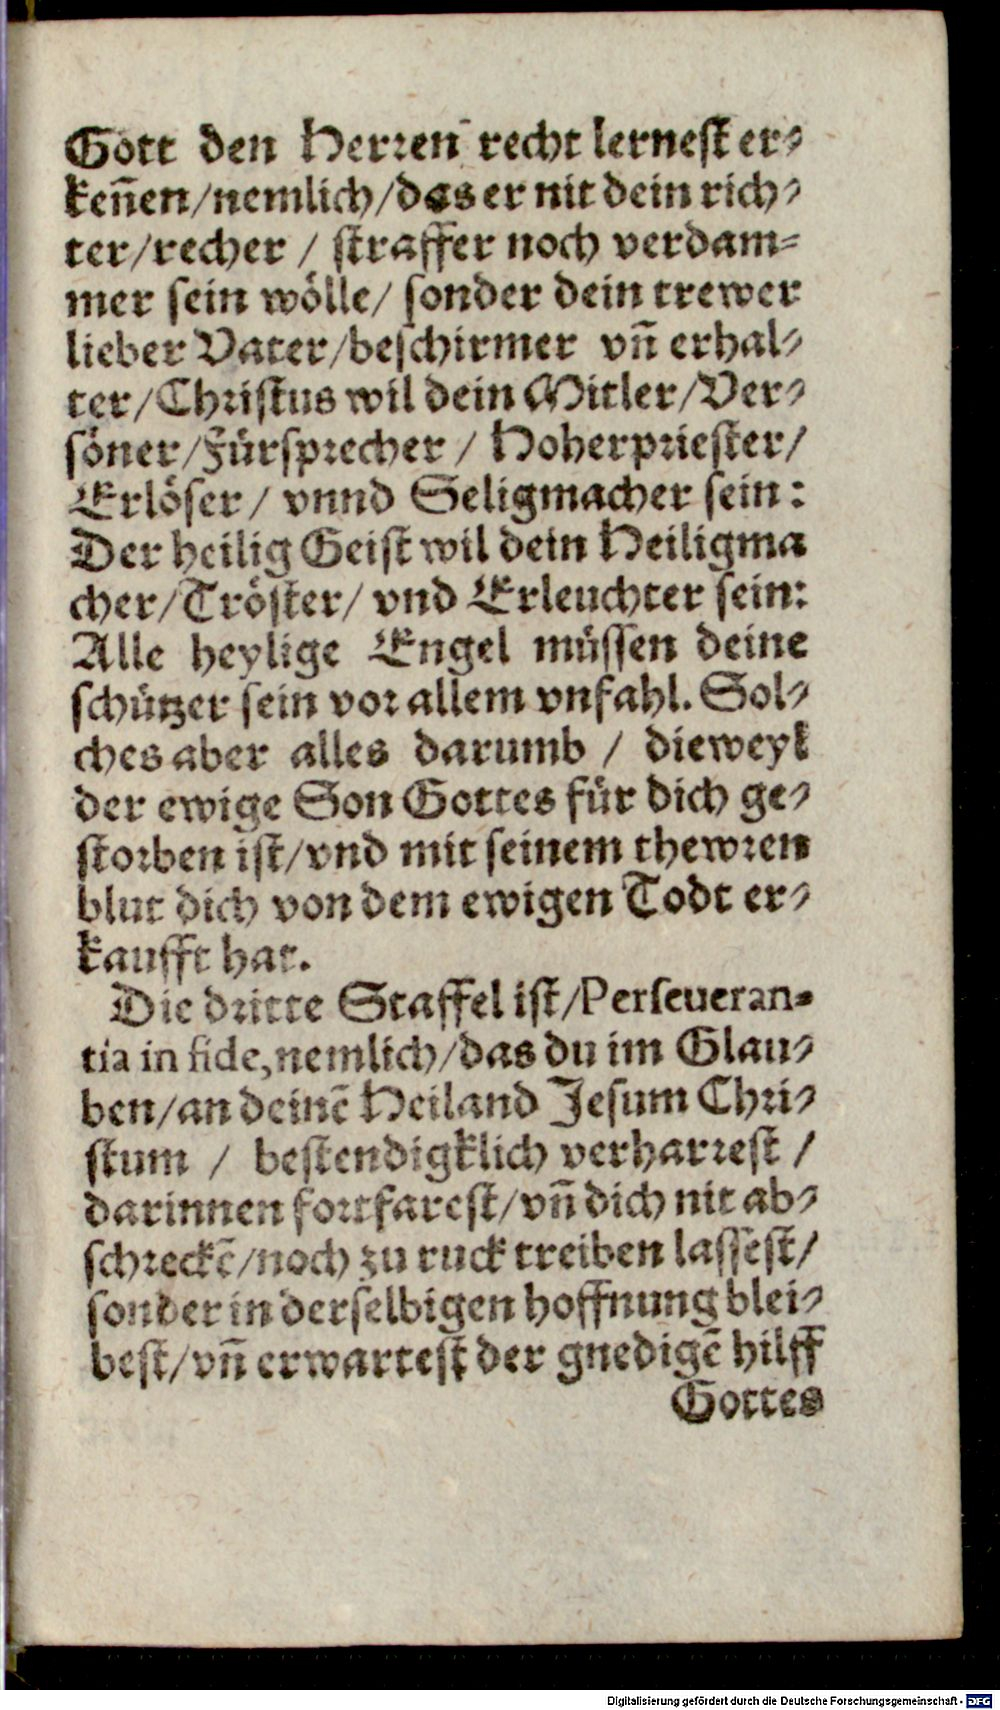 Gott den Herren recht lernest er⸗
keñen/nemlich/das er nit dein rich⸗
ter/recher / straffer noch verdam⸗
mer sein wölle/ sonder dein trewer
lieber Vater/beschirmer vñ erhal⸗
ter/Christus wil dein Mitler/Ver⸗
söner/Fürsprecher / Hoherpriester/
Erlöser/ vnnd Seligmacher sein:
Der heilig Geist wil dein Heiligma
cher/Tröster/ vnd Erleuchter sein:
Alle heylige Engel müssen deine
schützer sein vor allem vnfahl. Sol⸗
ches aber alles darumb / dieweyl
der ewige Son Gottes für dich ge⸗
storben ist/vnd mit seinem thewren
blut dich von dem ewigen Todt er⸗
kaufft hat.
Die dritte Staffel ist/Perseueran⸗
tia in fide, nemlich/das du im Glau⸗
ben/an deinē Heiland Jesum Chri⸗
stum / bestendigklich verharrest /
darinnen fortfarest/vñ dich nit ab⸗
schreckē/noch zu ruck treiben lassest/
sonder in derselbigen hoffnung blei⸗
best/vñ erwartest der gnedigē hilff
Gottes
Digitalisierung gefördert durch die Deutsche Forschungsgemeinschaft - DFG